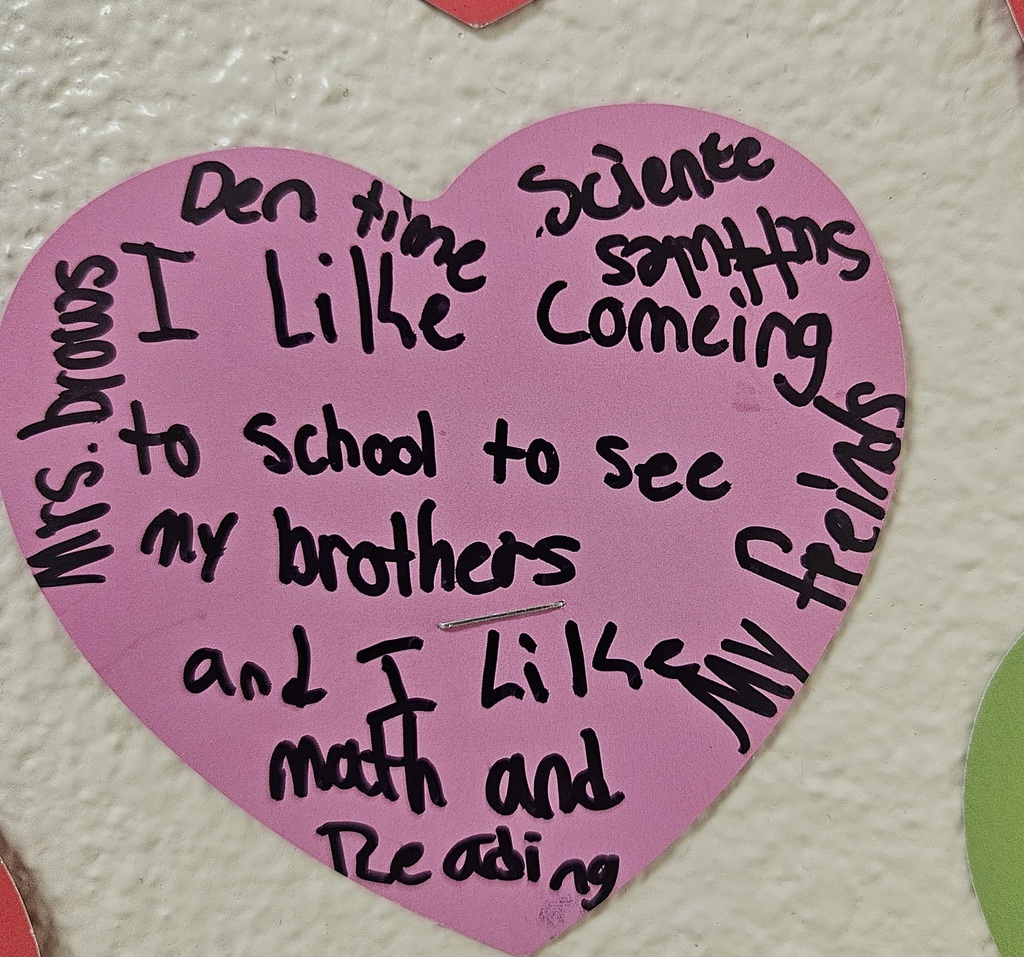 Den time
Science
I Like Comeing
to school to see
my brothers
and I Like
math and
Reading
Mrs. brows
My freinds